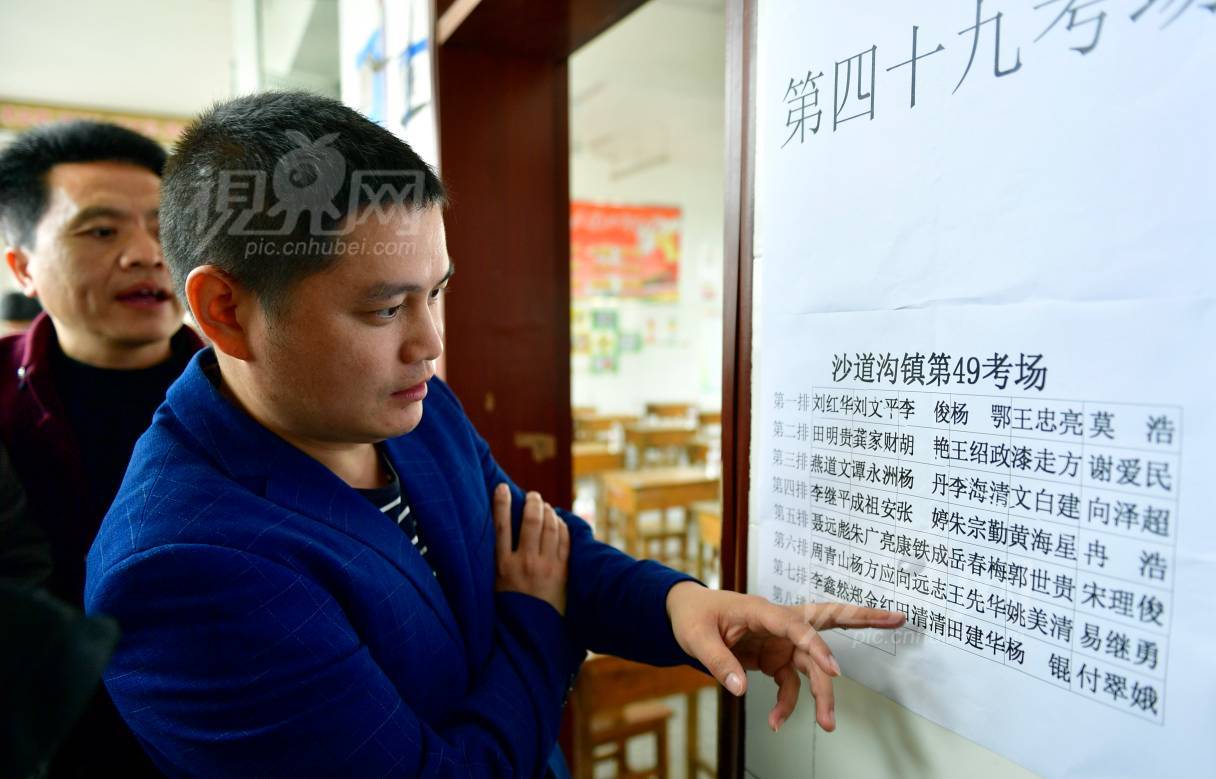 第四十九考场
視界网
pic.cnhubei.com
沙道沟镇第49考场
第一排 刘红华 刘文平 李 俊 杨 鄂 王忠亮 莫 浩
第二排 田明贵 龚家财 胡 艳 王绍政 漆走方 谢爱民
第三排 燕道文 谭永洲 杨 丹 李海清 文白建 向泽超
第四排 李继平 成祖安 张 婷 朱宗勤 黄海星 冉 浩
第五排 聂远彪 朱广亮 康铁成 岳春梅 郭世贵 宋理俊
第六排 周青山 杨方应 向远志 王先华 姚美清 易继勇
第七排 李鑫然 郑金红 田清清 田建华 杨 锟 付翠娥
第八排